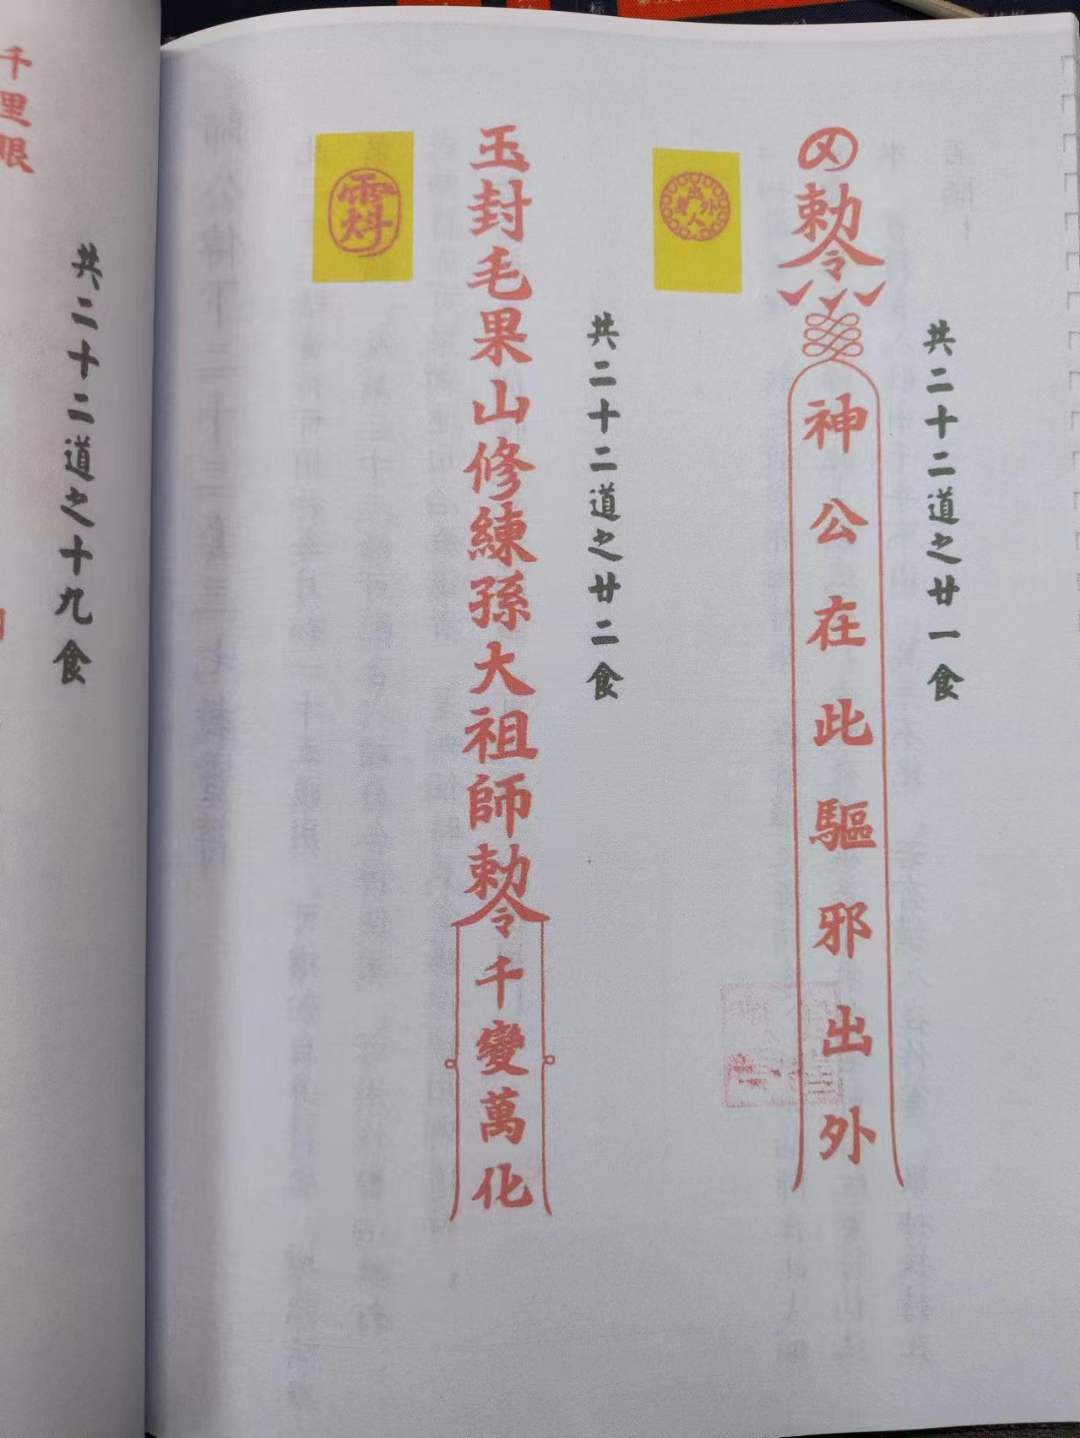 共二十二道之廿一食
勅令
神公在此驅邪出外
共二十二道之廿二食
玉封毛果山修練孫大祖師勅令
千變萬化
共二十二道之十九食
千里眼